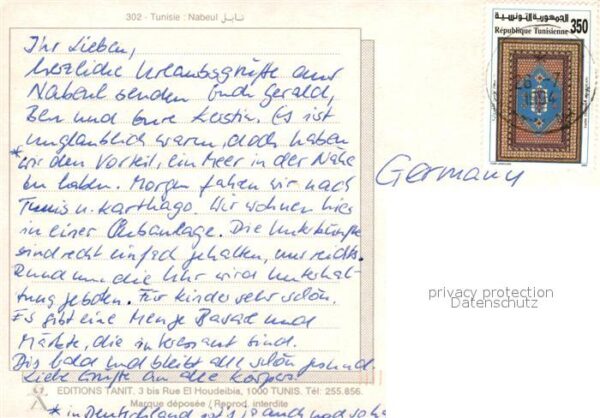 302 - Tunisie : Nabeul نابل
الجمهورية التونسية
République Tunisienne 350
Ihr Lieben,
herzliche Urlaubsgrüße aus
Nabeul senden Euch Gerald,
Ben und Eure Kerstin. Es ist
unglaublich warm, doch haben
* wir den Vorteil, ein Meer in der Nähe
zu haben. Morgen fahren wir nach
Tunis u. Karthago. Wir wohnen hier
in einer Clubanlage. Die Unterkünfte
sind recht einfach gehalten, nur
Rund um die Uhr wird Unterhal-
tung geboten. Für Kinder sehr schön.
Es gibt eine Menge Basare und
Märkte, die interessant sind.
Bis bald und bleibt alle schön gesund.
Liebe Grüße an alle
Germany
privacy protection
Datenschutz
EDITIONS TANIT. 3 bis Rue El Houdeibia, 1000 TUNIS. Tél: 255.856.
Marque déposée / Reprod. interdite
* in Deutschland auch